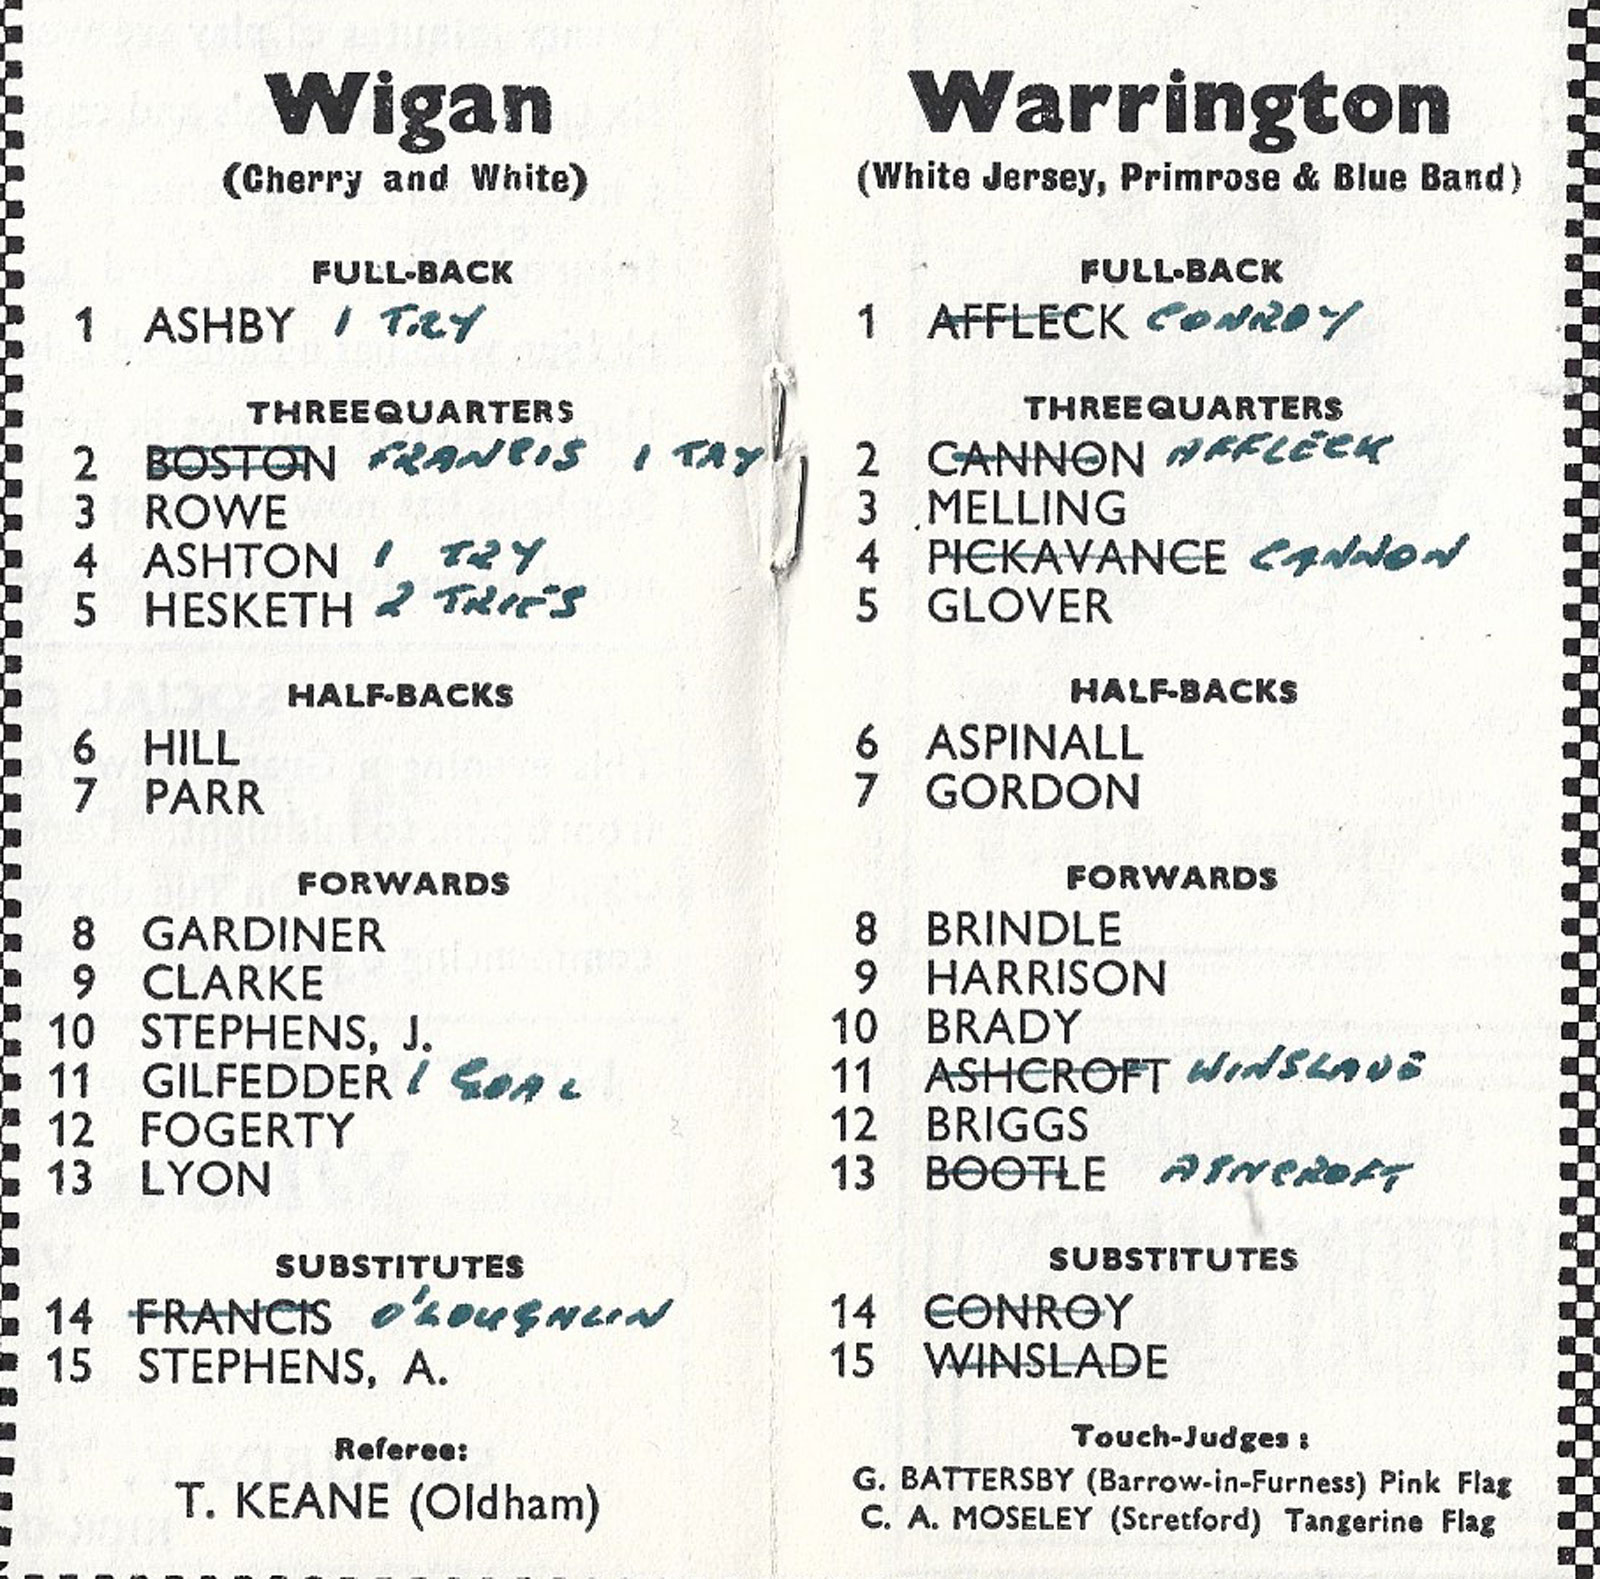 Wigan
(Cherry and White)
FULL-BACK
1 ASHBY 1 TRY
THREEQUARTERS
2 BOSTON FRANCIS 1 TRY
3 ROWE
4 ASHTON 1 TRY
5 HESKETH 2 TRIES
HALF-BACKS
6 HILL
7 PARR
FORWARDS
8 GARDINER
9 CLARKE
10 STEPHENS, J.
11 GILFEDDER 1 GOAL
12 FOGERTY
13 LYON
SUBSTITUTES
14 FRANCIS O'LOUGHLIN
15 STEPHENS, A.
Referee:
T. KEANE (Oldham)
Warrington
(White Jersey, Primrose & Blue Band)
FULL-BACK
1 AFFLECK CONROY
THREEQUARTERS
2 CANNON AFFLECK
3 MELLING
4 PICKAVANCE CANNON
5 GLOVER
HALF-BACKS
6 ASPINALL
7 GORDON
FORWARDS
8 BRINDLE
9 HARRISON
10 BRADY
11 ASHCROFT WINSLADE
12 BRIGGS
13 BOOTLE ASHCROFT
SUBSTITUTES
14 CONROY
15 WINSLADE
Touch-Judges:
G. BATTERSBY (Barrow-in-Furness) Pink Flag
C. A. MOSELEY (Stretford) Tangerine Flag